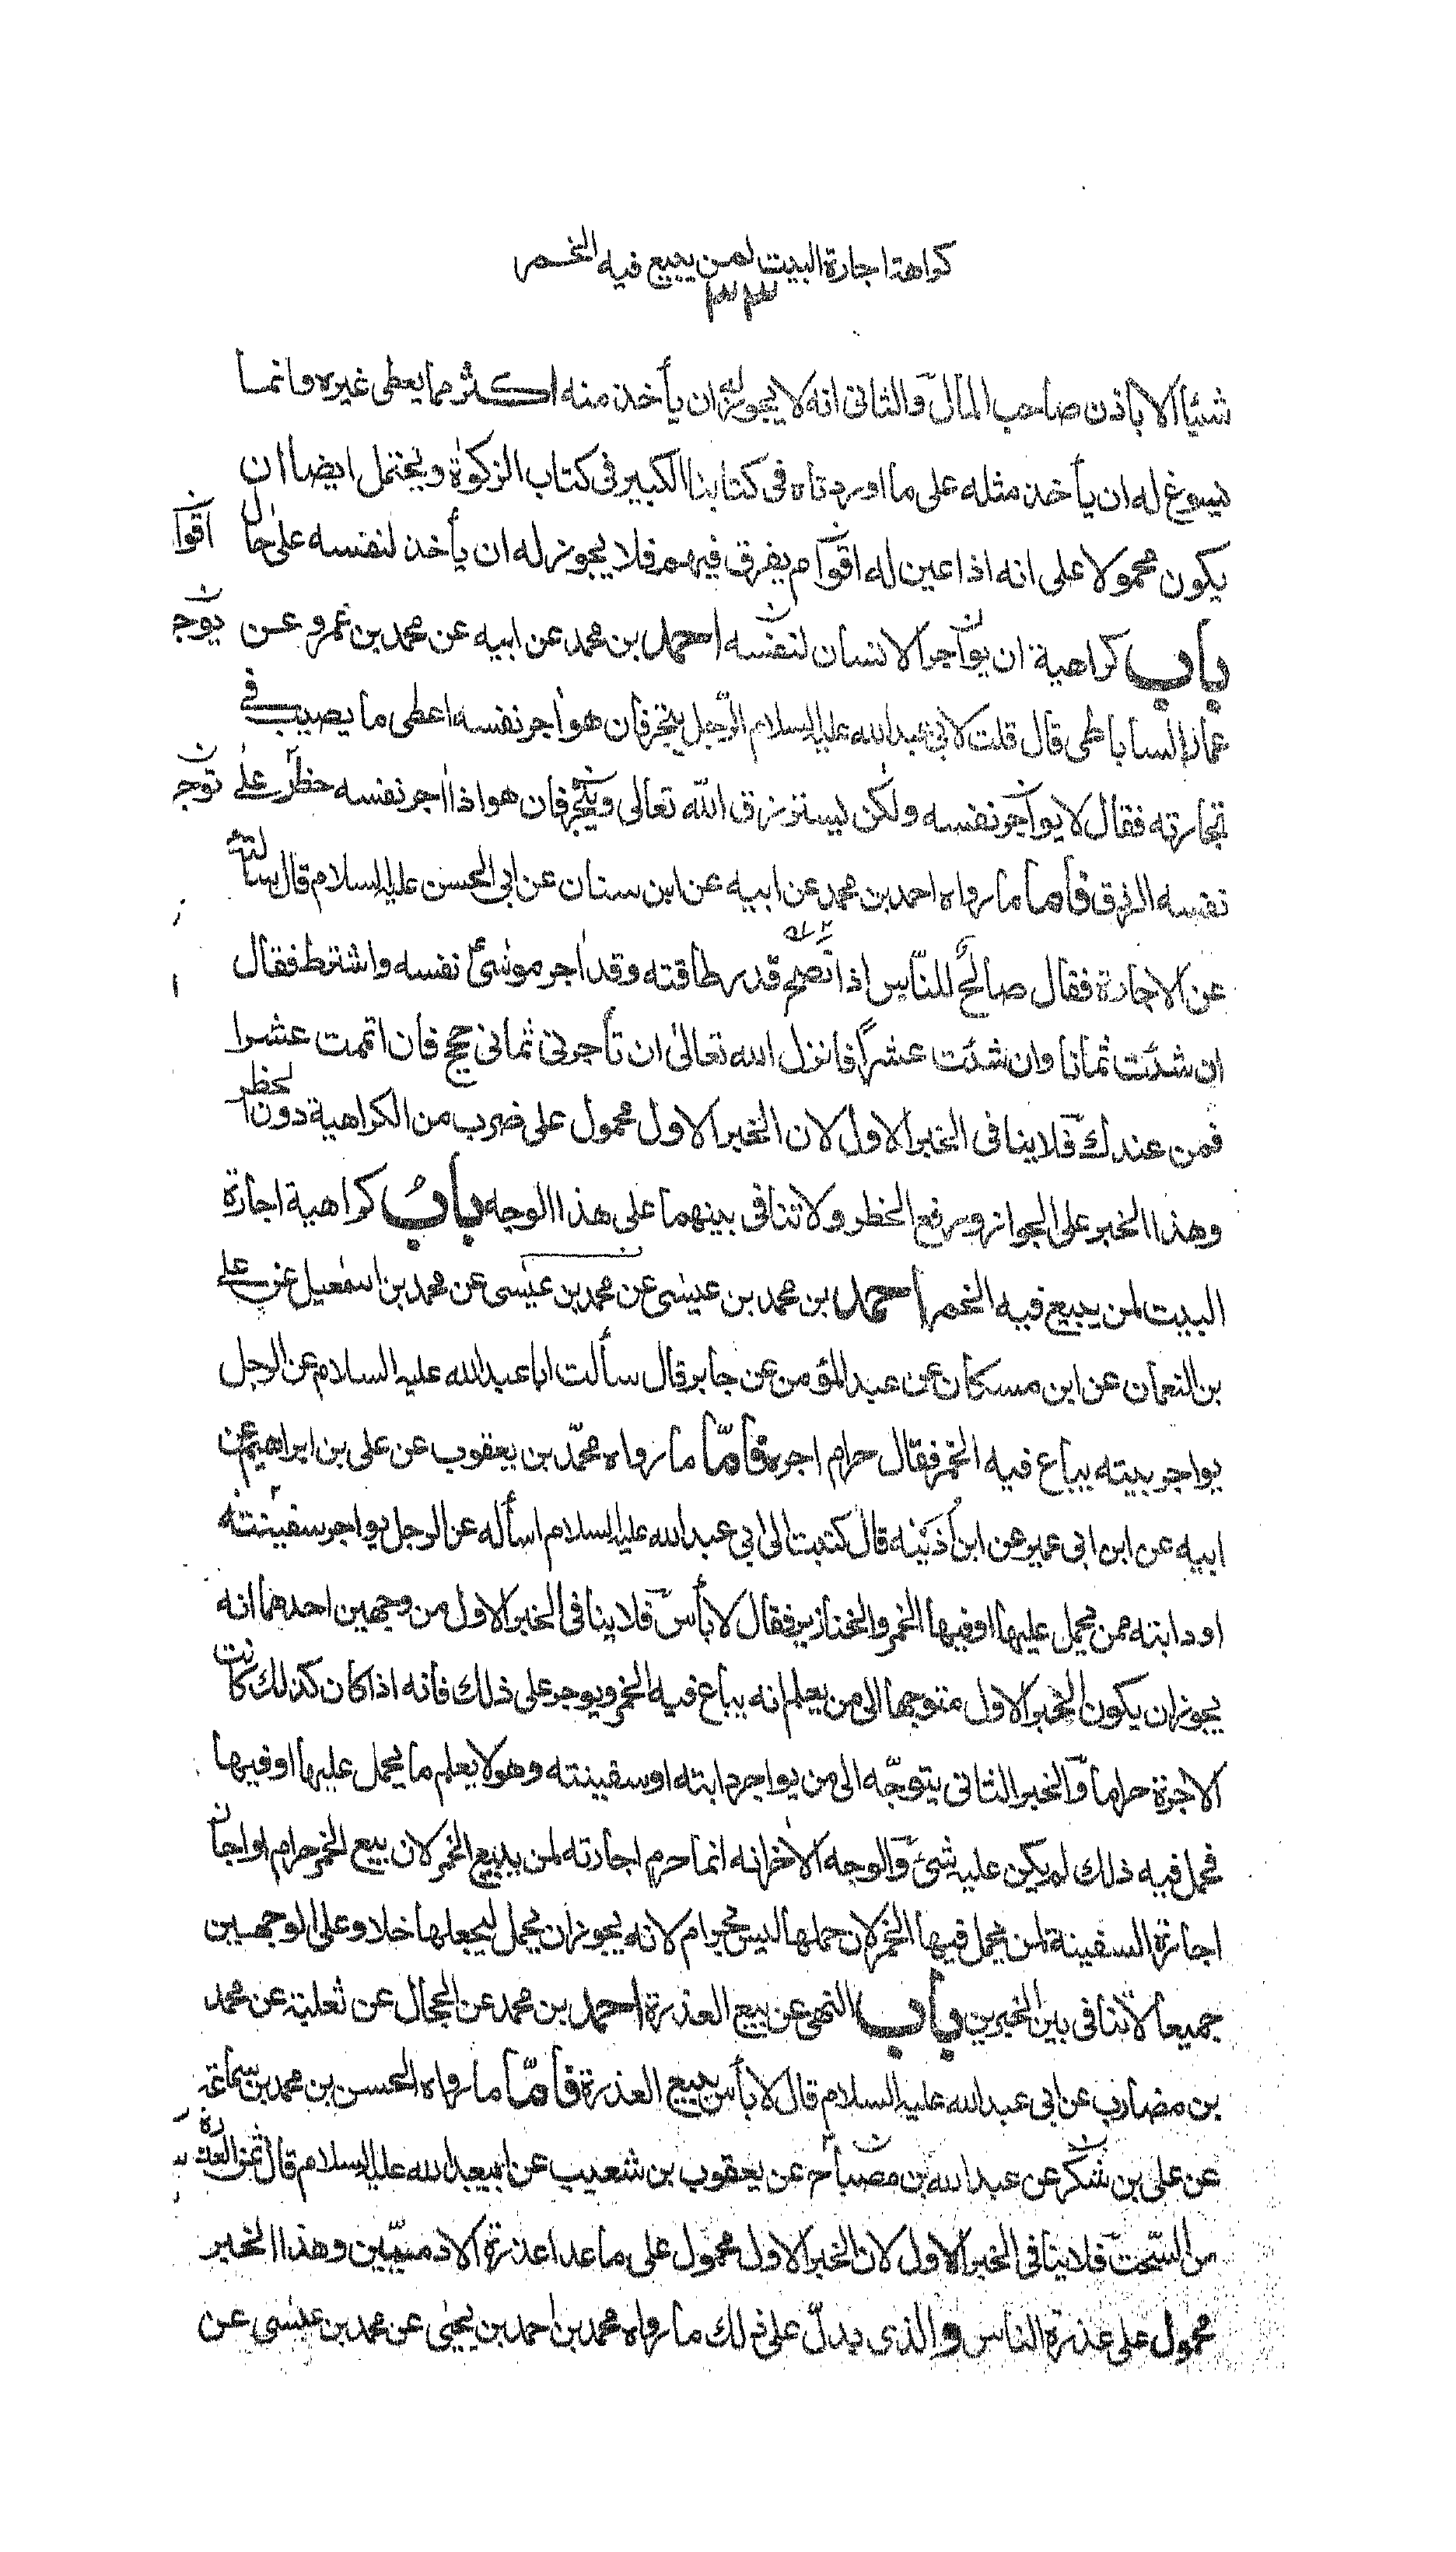 كراهة اجارة البيت لمن يبيع فيه الخمر
٣٣
شيئا الا باذن صاحب المال والثانى انه لا يجوز له ان يأخذ منه اكثر مما يعطى غيره وانما
يسوغ له ان يأخذ مثله على ما اوردناه فى كتابنا الكبير فى كتاب الزكوٰة ويحتمل ايضا ان
يكون محمولا على انه اذا عين له اقوام يفرق فيهم فلا يجوز له ان يأخذ لنفسه على حال
باب كراهية ان يواجر الانسان لنفسه احمد بن محمد عن ابيه عن محمد بن عمرو عن
عمار الساباطى قال قلت لابى عبد الله عليه السلام الرّجل يتجر فان هو اجر نفسه اعطى ما يصيب فى
تجارته فقال لا يواجر نفسه ولكن يسترزق الله تعالى ويتجر فان هو اذا اجر نفسه حظر على
نفسه الرزق فأما ما رواه احمد بن محمد عن ابيه عن ابن سنان عن ابى الحسن عليه السلام قال سألته
عن الاجارة فقال صالح للنّاس اذا نصح قدر طاقته وقد اجر موسىٰ نفسه واشترط فقال
ان شئت ثمانا وان شئت عشراً فانزل الله تعالىٰ ان تأجرنى ثمانى حجج فان اتممت عشرا
فمن عندك فلا ينافى الخبر الاول لان الخبر الاول محمول على ضرب من الكراهية دون الحظر
وهذا الخبر على الجواز ورفع الحظر ولا تنافى بينهما على هذا الوجه بابُ كراهية اجارة
البيت لمن يبيع فيه الخمر احمد بن محمد بن عيسى عن محمد بن عيسى عن محمد بن اسمعيل عن على
بن النعمان عن ابن مسكان عن عبد المؤمن عن جابر قال سألت ابا عبد الله عليه السلام عن الرجل
يواجر بيته يباع فيه الخمر فقال حرام اجره فأمّا ما رواه محمّد بن يعقوب عن على بن ابراهيم عن
ابيه عن ابن ابى عمير عن ابن اُذينه قال كتبت الى ابى عبد الله عليه السلام اسأله عن الرجل يواجر سفينته
او دابته ممن يحمل عليها او فيها الخمر والخنازير فقال لا بأس فلا ينافى الخبر الاول من وجهين احدهما انه
يجوز ان يكون الخبر الاول متوجها الى من يعلم انه يباع فيه الخمر ويوجر على ذلك فأنه اذا كان كذلك كانت
الاجرة حراما والخبر الثانى يتوجّه الى من يواجر دابته او سفينته وهو لا يعلم ما يحمل عليها او فيها
فحمل فيه ذلك لم يكن عليه شئ والوجه الاخر انه انما حرم اجارته لمن يبيع الخمر لان بيع الخمر حرام واجاز
اجارة السفينة لمن يحمل فيها الخمر لان حملها ليس بحرام لانه يجوز ان يحمل ليجعلها خلا وعلى الوجهين
جميعا لا تنافى بين الخبرين باب النهى عن بيع العذرة احمد بن محمد عن الحجال عن ثعلبة عن محمد
بن مضارب عن ابى عبد الله عليه السلام قال لا بأس ببيع العذرة فأمّا ما رواه الحسن بن محمد بن سماعة
عن على بن شكر عن عبد الله بن مصباح عن يعقوب بن شعيب عن ابيعبد الله عليه السلام قال ثمن العذرة
من السّحت فلا ينافى الخبر الاول لان الخبر الاول محمول على ما عدا عذرة الادميّين وهذا الخبر
محمول على عذرة الناس والذى يدلّ على ذلك ما رواه محمد بن احمد بن يحيٰى عن محمد بن عيسى عن